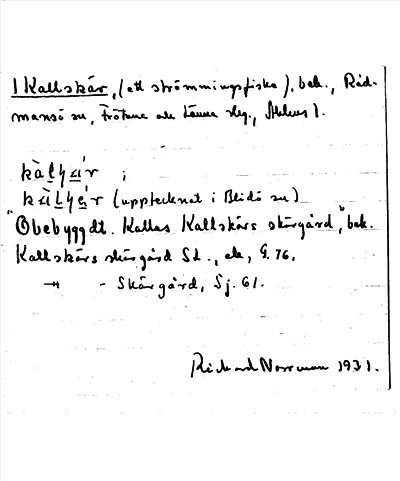 1 Kallskär, (ett strömmingsfiske), bek., Råd-
mansö sn, Frötuna och Länna slg.,
kàlʃɛ́r ;
kɛ̀lʃɛ́r (upptecknat i Blidö sn)
"Obebyggdt. Kallas Kallskärs skärgård", bek.
Kallskärs skärgård Sd., ek, G. 76.
→ - Skärgård, Sj. 61.
Rickard Norrman 1931.